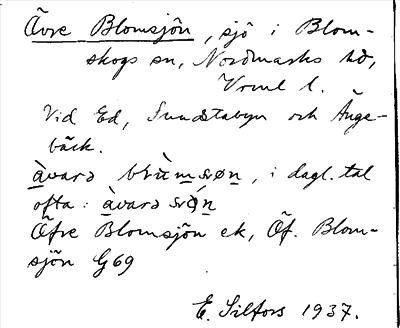 Övre Blomsjön, sjö i Blom-
skogs sn, Nordmarks hd,
Vrml l.
Vid Ed, Sundstabyn och Änge-
bäck.
àvarə blùmsøn, i dagl. tal
ofta: àvarə sǿn
Öfre Blomsjön ek, Öf. Blom-
sjön G69
E. Silfors 1937.